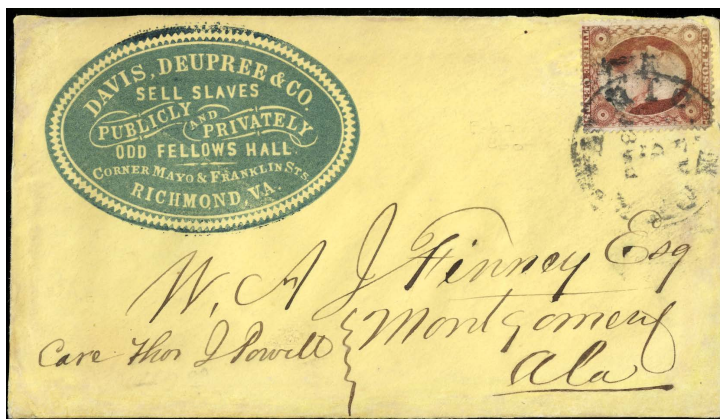 DAVIS, DEUPREE & CO.
SELL SLAVES
PUBLICLY AND PRIVATELY
ODD FELLOWS HALL
CORNER MAYO & FRANKLIN STS.
RICHMOND, VA.
W. A J Finney Esq
Care Thos J Powell
Montgomery
Ala